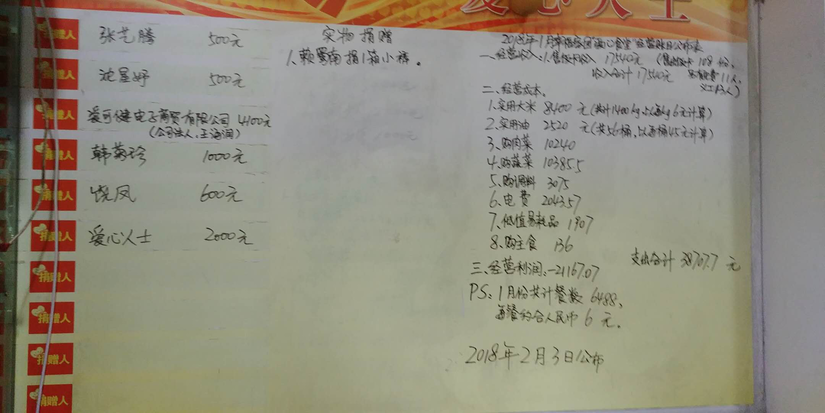 爱心人士
捐赠人 张艺腾 500元
捐赠人 沈星妤 500元
捐赠人 爱可健电子商贸有限公司 4100元
(公司法人:王海润)
捐赠人 韩菊珍 1000元
捐赠人 饶凤 600元
捐赠人 爱心人士 2000元
捐赠人
捐赠人
捐赠人
捐赠人
实物捐赠
1.赖蜀南捐1箱小裤。
2018年1月幸福家园"爱心食堂"经营账目公布表
一.经营收入:1.售饭卡收入 17540元 (售饭卡 108份,
收入合计 17540元 11人,
义工13人)
二、经营成本,
1.实用大米 8400元(共计1400kg,以每kg 6元计算)
2.实用油 2520元(共56桶,以每桶45元计算)
3.购肉菜 10240
4.购蔬菜 10385.5
5.购调料 3075
6.电费 2043.57
7.低值易耗品 1907
8.购主食 136
支出合计 38707.7元
三、经营利润:-21167.07
PS:1月份共计餐数:6488,
每餐约合人民币6元。
2018年2月3日公布